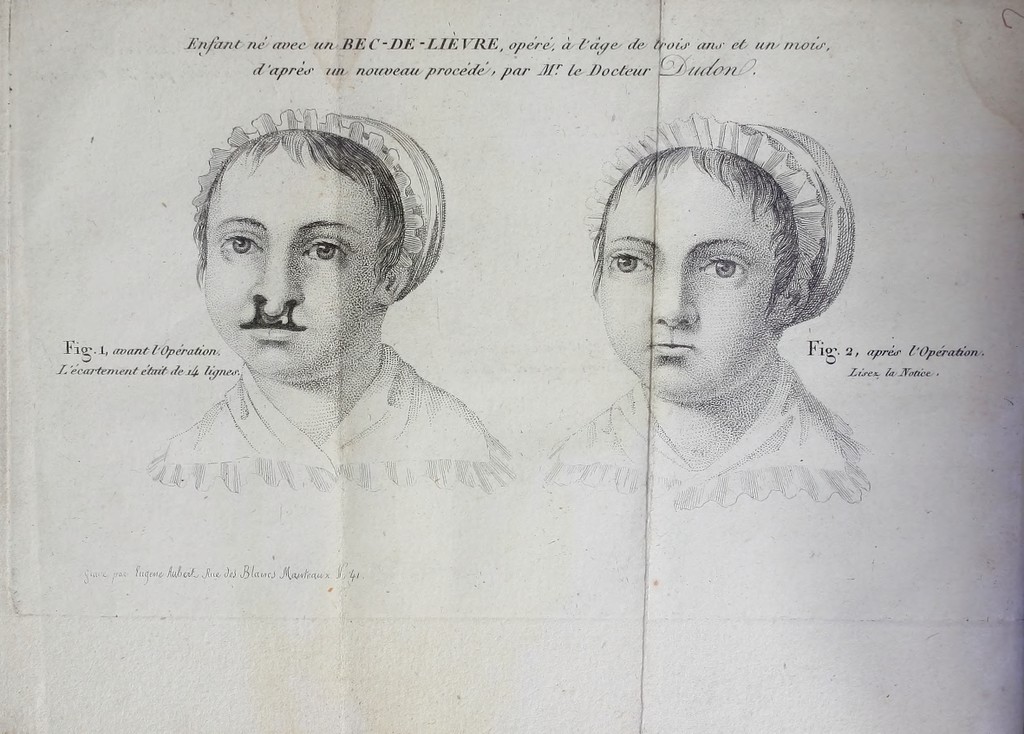 Enfant né avec un BEC-DE-LIÈVRE, opéré, à l'âge de trois ans et un mois,
d'après un nouveau procédé, par Mr. le Docteur Dudon.
Fig. 1, avant l'Opération.
L'écartement était de 14 lignes.
Fig. 2, après l'Opération.
Lisez la Notice.
Gravé par Eugene Aubert Rue des Blancs Manteaux N. 41